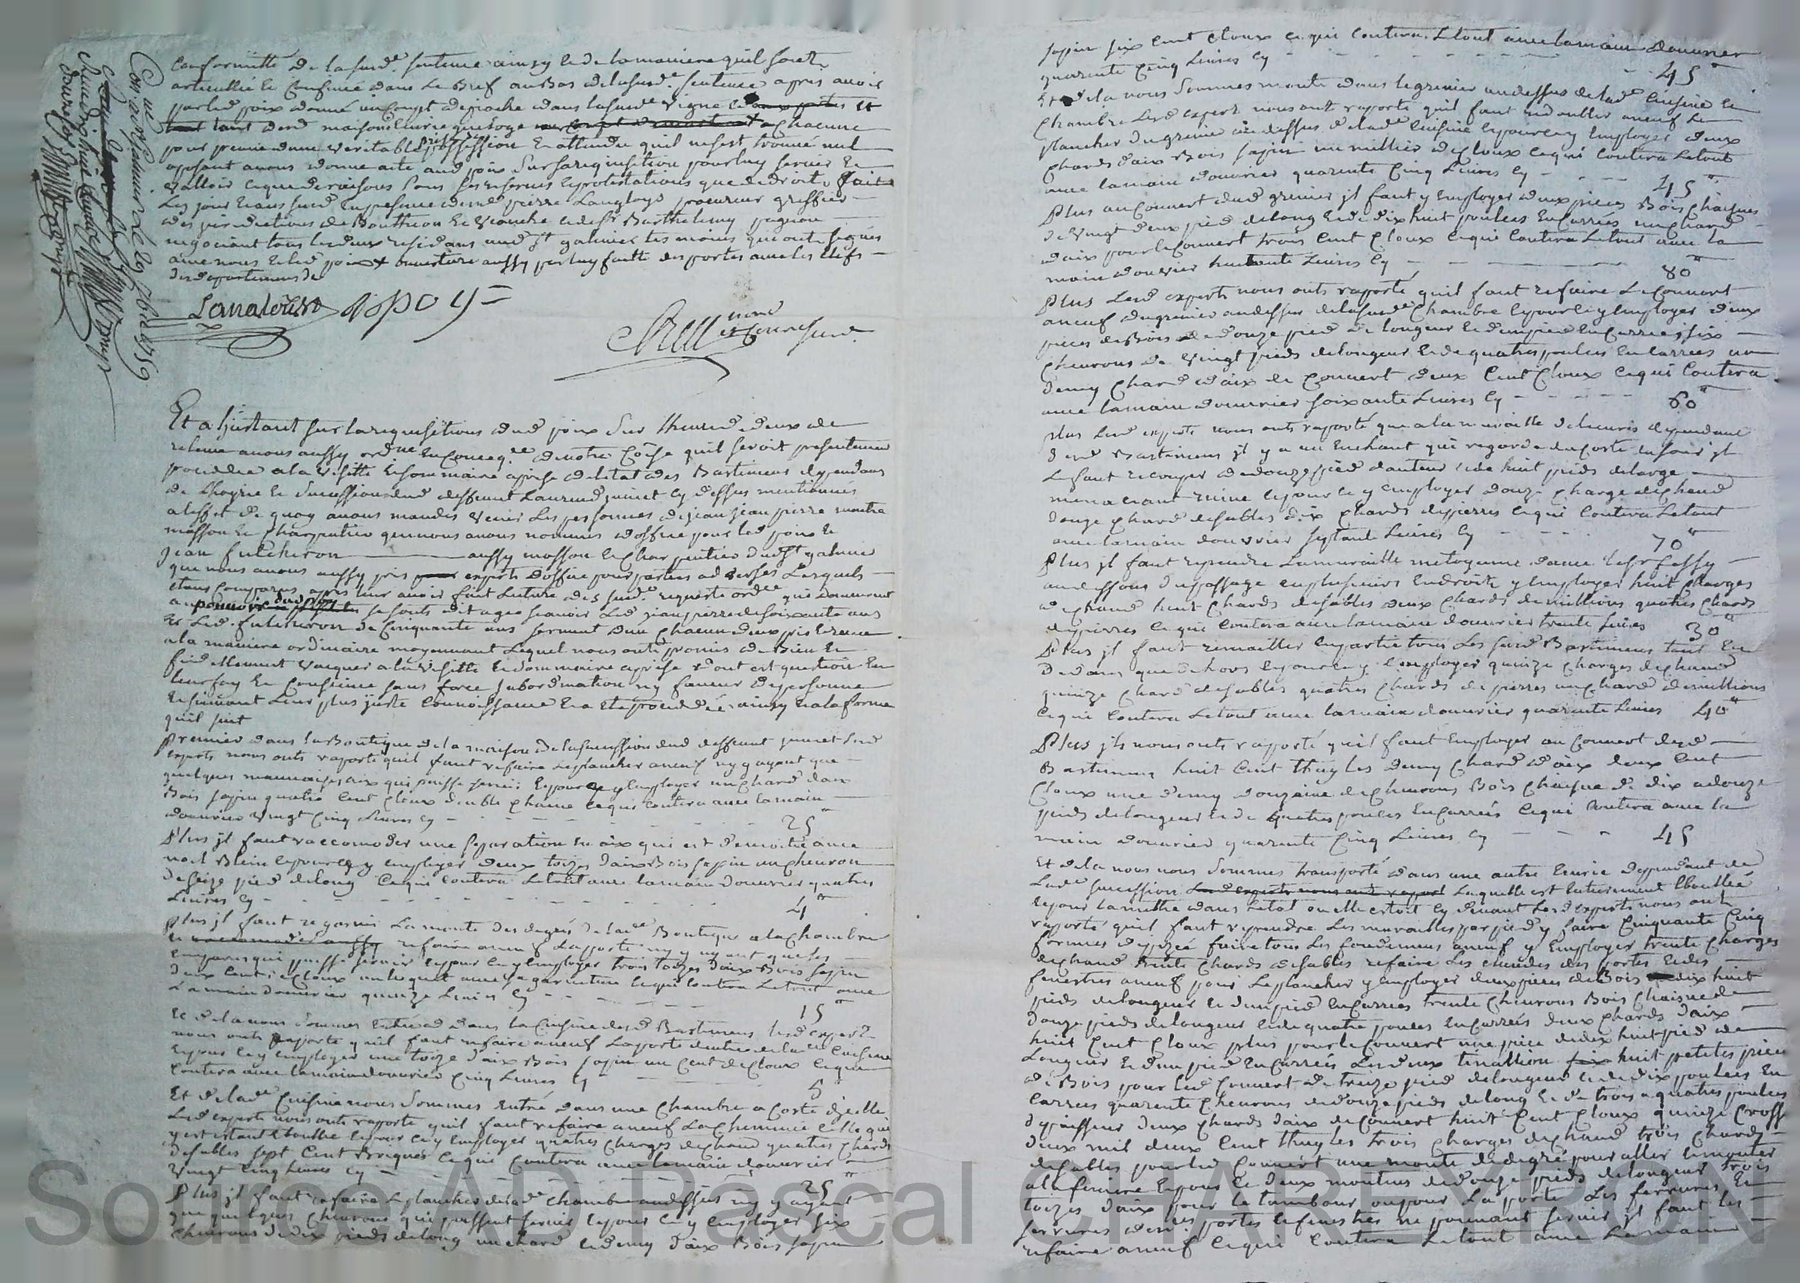 conformitté de la susde sentence ainsy et de la maniere quil seroit
articullée et confinée dans le Bref au Bas de la susde sentence apres avoir
pour prendre une veritable possession et attendu quil ne sest trouvé nul
opposant avons donné acte aud poix sur sa requisition pour luy servir et
valloir ce que de raisons sous les reserves et protestations que de droit fait
Les jour et an susd en presence de me pierre Langlois procureur greffier
des jurisdictions de Bouthéon et Veauche et de sr Barthelemy pignon
negociant tous les deux residans aud st galmier tesmoins qui ont signés
avec nous et led poix
des apartemens de
Et a linstant sur la requisitions dud poix sur lheure de deux de
relevée avons aussy ordné en conseqce de notre Coise quil seroit presentement
proceddé a la visitte et sommaire apprise de letat des Bastimens dependans
de Lhoyrie et succession dud deffunt Laurend jamet cy dessus mentionnés
a leffet de quoy avons mandés venir les personnes de jean jean pierre montre
masson et charpentier que nous avons nommés doffice pour led poix et
jean futchiron aussy masson et charpentier dud st galmier
que nous avons aussy pris experts doffice pour parties adverses Lesquels
etant comparus apres leur avoir fait lecture des susd requeste ordce qui donnent
se sont dit agés scavoir Led jean pierre de soixante ans
Et Led futchiron de cinquante ans serment dun chacun deux pris et receu
a la maniere ordinaire moyennant lequel nous ont promis de Bien et
fidellement vacquer a la visitte et sommaire apprise dont est question en
leur foy et consience sans force subordination ny faveur de personne
et suivant leur plus juste connoissance et a ete proceddé ainsy et a la forme
quil suit
Premier dans la Boutique de la maison de la succession dud deffunt jamet Lesd
experts nous ont raporté quil faut refaire le plancher aneuf ny ayant que
quelques mauvaises aix qui puisse servir et pour ce y employer un chard daix
Bois sapin quatre cent cloux double chaine ce qui coutera avec la main
douvrier vingt cinq Livres cy - - - 25tt
Plus jl faut raccomoder une separation en aix qui est de moitié avec
noel Blein et pour ce y employer deux toizes daix Bois sapin un chevron
de seize pied de long ce qui coutera Le tout avec la main douvrier quatre
Livres cy - - - 4tt
Plus jl faut regarnir la monté des degrés de lade Boutique a la chambre
et refaire aneuf la porte ny ayant que les
emparres qui puisse servir et pour ce y employer trois toizes daix Bois sapin
deux cent de cloux un loquet avec sa garniture ce qui coutera Le tout avec
La main douvrier quinze Livres cy - - - 15tt
Et de la nous sommes entré dans la cuisine desd Bastimens lesd experts
nous ont raporté quil faut refaire aneuf la porte dentrée de lade cuisine
et pour ce y employer une toize daix Bois sapin un cent de cloux ce qui
coutera avec la main douvrier cinq Livres cy - - - 5tt
Et de lade cuisine nous sommes entré dans une chambre a costé dycelle
Lesd experts nous ont raporté quil faut refaire aneuf La cheminée celle qui
y est etant éboullée et pour ce y employer quatre charges de chaud quatre chards
de sables sept cent Briques ce qui coutera avec la main douvrier
vingt cinq Livres cy - - - 25tt
Plus jl faut refaire le plancher de lade chambre au dessus ny ayant
que quelques chevrons qui puissent servir et pour ce y employer six
chevrons de dix pieds de long un chard et demy daix Bois sapin
sapin six cent cloux ce qui coutera Le tout avec la main douvrier
quarente cinq Livres cy - - - 45tt
Et de la nous sommes monté dans le grenier au dessus de lade cuisine et
chambre Lesd expert nous ont raporté quil faut refaire aneuf Le
plancher du grenier au dessus de lade cuisine et pour ce y employer deux
chards daix Bois sapin un millier de cloux ce qui coutera Le tout
avec la main douvrier quarente cinq Livres cy - - - 45tt
Plus au couvert dud grenier jl faut y employer deux pieces Bois chaisne
de vingt deux pied de long et de dix huit poulces en carrés un chard
daix pour le couvert trois cent cloux ce qui coutera Le tout avec la
main douvrier huitente Livres cy - - - 80tt
Plus Lesd experts nous ont raporté quil faut refaire Le couvert
aneuf du grenier au dessus de la susde chambre et pour ce y employer deux
pieces de Bois de douze pied de longeur et dun pied en carré six
chevrons de vingt pieds de longeur et de quatre poulces en carrés un
demy chard daix de couvert deux cent cloux ce qui coutera
avec la main douvrier soixante Livres cy - - - 60tt
Plus Lesd experts nous ont raporté que a la muraille de leurie dependant
desd Bastimens jl y a un Enchant qui regarde
Le faut recouper de douze pied dauteur et de huit pieds de large
menaciant ruine et pour ce y employer douze charge de chaud
douze chard de sables dix chards de pierres ce qui coutera Le tout
avec la main douvrier septante Livres cy - - - 70tt
Plus jl faut reprendre La muraille mitoyenne
au dessous du passage en plusieurs endroits y employer huit charges
de chaud huit chards de sables deux chards de millions quatre chards
de pierres ce qui coutera avec la main douvrier trente Livres 30tt
Plus jl faut remailler en partie tous Les susd Bastimens tant en
dedans que dehors et pour ce y employer quinze charges de chaud
quinze chard de sables quatre chards de pierres un chard de millions
ce qui coutera Le tout avec la main douvrier quarente Livres 40tt
Plus jls nous ont raporté quil faut employer au couvert desd
Bastimens huit cent thuyles demy chard daix deux cent
cloux une demy douzaine de chevrons Bois chaisne de dix a douze
pieds de longeur et de quatre poulces en carrés ce qui coutera avec la
main douvrier quarente cinq Livres cy - - - 45
Et de la nous nous sommes transporté dans une autre Ecurie dependant de
Lade succession Laquelle est entierement éboullée
et pour la mettre dans letat ou elle estoit cy devant Lesd experts nous ont
raporté quil faut reprendre Les murailles par pied y faire cinquante cinq
formes de pizéé faire tous Les fondemens aneuf y employer trente charges
de chaud trente chards de sables refaire Les des portes et des
fenestres aneuf pour Le plancher y employer deux pieces de Bois dix huit
pieds de longeur et dun pied en carrés trente chevrons Bois chaisne de
douze pieds de longeur et de quatre poulces en carrés deux chards daix
huit cent cloux plus pour le couvert une piece de dix huit pied de
Longeur et dun pied en carrés Les deux huit petites pieces
de Bois pour led couvert de treize pied de longeur et de dix poulces en
carrés quarente chevrons de douze pieds de long et de trois a quatre poulces
depaisseur deux chards daix de couvert huit cent cloux quinze
deux mil deux cent thuyles trois charges de chaud trois chards
de sables pour led couvert une monté de degré pour aller et monter
a la feniere et pour ce deux de douze pieds de longeur trois
toizes daix pour le tambour ou pour la porte Les ferrures et
serrures desd portes et fenestres ne pouvant servir jl faut les
refaire aneuf ce qui coutera Le tout avec La main
Source AD Pascal CHAREYRON